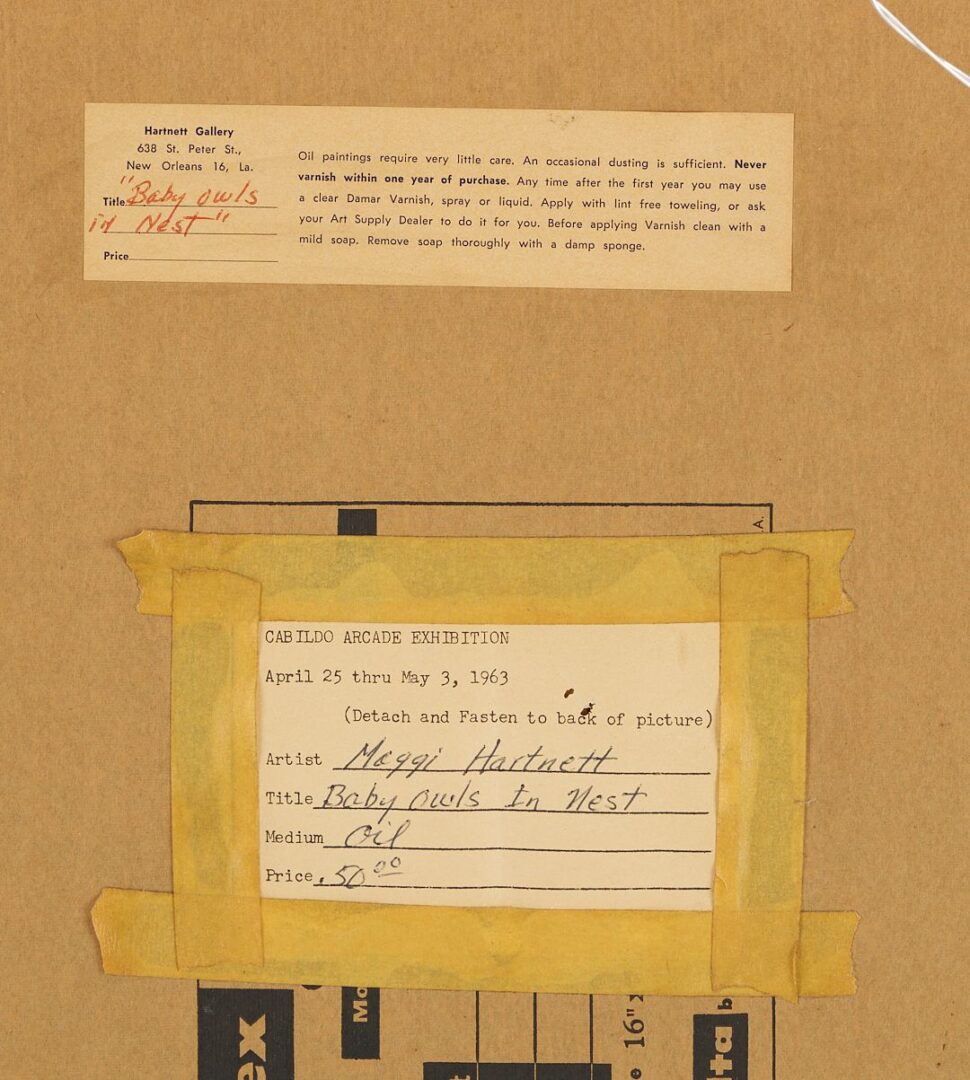 Hartnett Gallery
638 St. Peter St.,
New Orleans 16, La.
Title "Baby owls
in Nest"
Price
Oil paintings require very little care. An occasional dusting is sufficient. Never
varnish within one year of purchase. Any time after the first year you may use
a clear Damar Varnish, spray or liquid. Apply with lint free toweling, or ask
your Art Supply Dealer to do it for you. Before applying Varnish clean with a
mild soap. Remove soap thoroughly with a damp sponge.
A.
CABILDO ARCADE EXHIBITION
April 25 thru May 3, 1963
(Detach and Fasten to back of picture)
Artist Maggi Hartnett
Title Baby owls In Nest
Medium Oil
Price .50 00
ex
Mo
16"